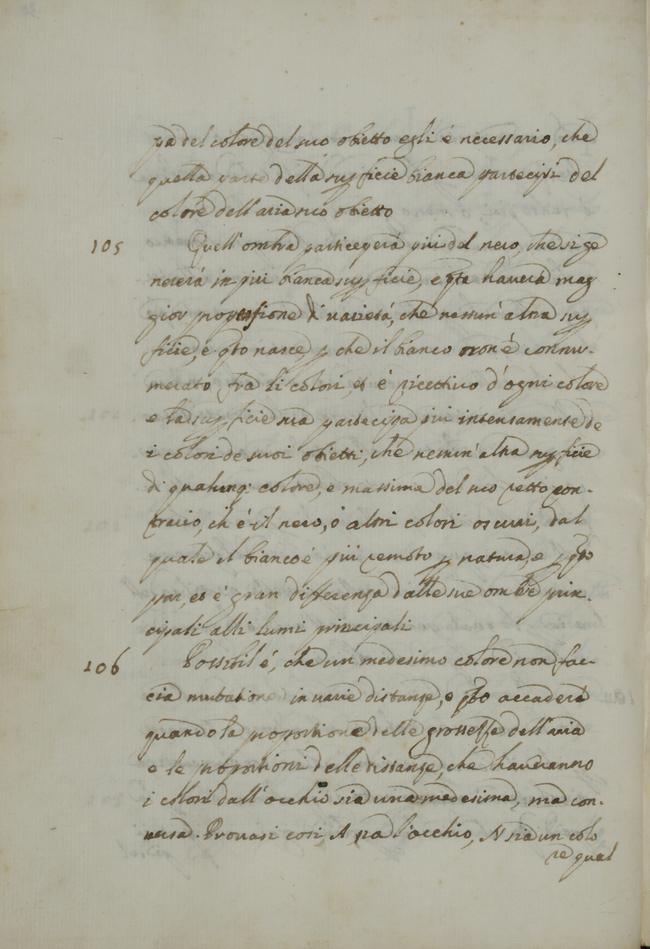 pa del colore del suo obietto egli é necessario, che
quella parte della suptficie bianca partecipi del
colore dell'aria suo obietto
105 Quell'ombra participerá piú del nero, che si ge
nererá in piú bianca supficie, e qta haverá mag
gior propessione d'varietá, che nessun'altra sup
ficie, e qto nasce, p che il bianco non é connu-
merato fra li colori, et é ricettivo d'ogni colore
e la supficie sua partecipa piú intensamente de
i colori de suoi obietti, che nessun'altra supficie
di qualunq: colore, e massima del suo retto con-
trario, ch'é il nero, ó altri colori oscuri, dal
quale il bianco é piú remoto p natura, e p qto
par, et é gran differenza dalle sue ombre prin-
cipali alli lumi principali
106 Possibil'é, che un medesimo colore non fac-
cia mutatione in varie distanze, e qto accaderá
quando la proportione delle grossesse dell'aria
e le proportioni delle distanze, che haveranno
i colori dall'occhio sia una medesima, ma con-
versa. Provasi cosi, A sia l'occhio, N sia un colo
re qual